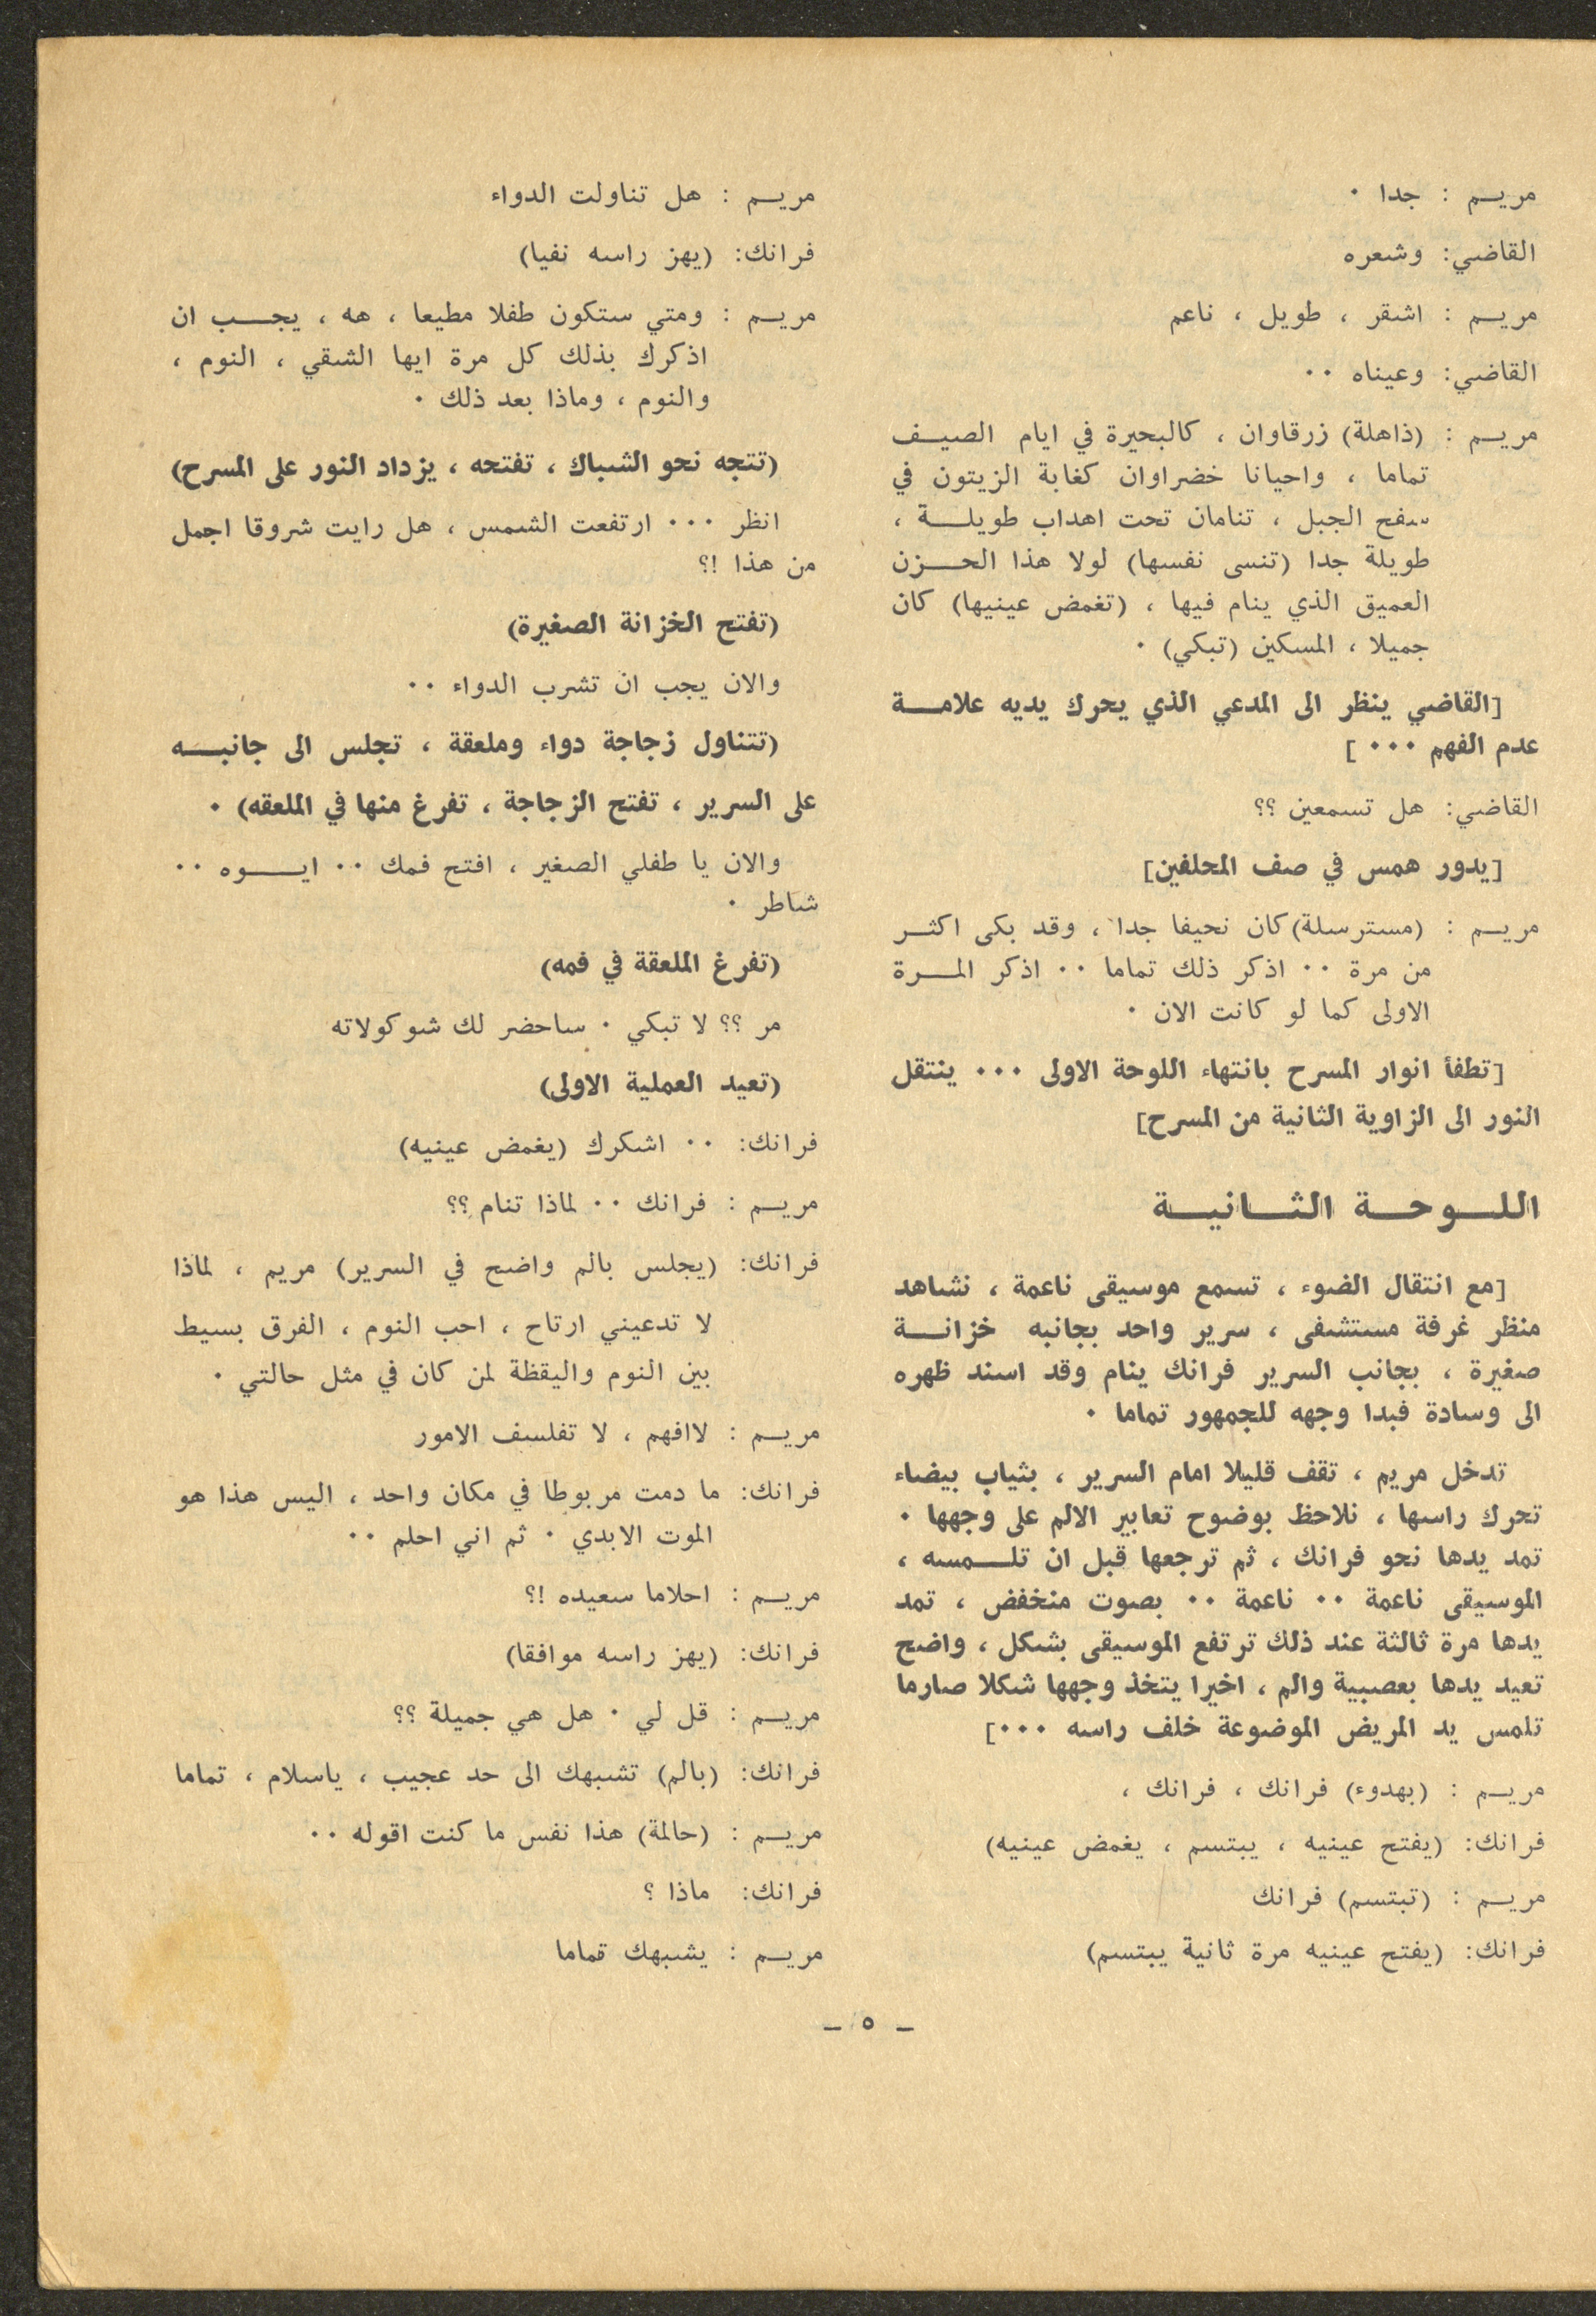 مريم : جدا ٠
القاضي: وشعره
مريم : اشقر ، طويل ، ناعم
القاضي: وعيناه ٠٠
مريم : (ذاهلة) زرقاوان ، كالبحيرة في ايام الصيف
تماما ، واحيانا خضراوان كغابة الزيتون في
سفح الجبل ، تنامان تحت اهداب طويلة ،
طويلة جدا (تنسى نفسها) لولا هذا الحزن
العميق الذي ينام فيها ، (تغمض عينيها) كان
جميلا ، المسكين (تبكي) ٠
[القاضي ينظر الى المدعي الذي يحرك يديه علامة
عدم الفهم ٠٠٠ ]
القاضي: هل تسمعين ؟؟
[يدور همس في صف المحلفين]
مريم : (مسترسلة) كان نحيفا جدا ، وقد بكى اكثر
من مرة ٠٠ اذكر ذلك تماما ٠٠ اذكر المرة
الاولى كما لو كانت الان ٠
[تطفأ انوار المسرح بانتهاء اللوحة الاولى ٠٠٠ ينتقل
النور الى الزاوية الثانية من المسرح]
اللوحة الثانية
[مع انتقال الضوء ، تسمع موسيقى ناعمة ، نشاهد
منظر غرفة مستشفى ، سرير واحد بجانبه خزانة
صغيرة ، بجانب السرير فرانك ينام وقد اسند ظهره
الى وسادة فبدا وجهه للجمهور تماما ٠
تدخل مريم ، تقف قليلا امام السرير ، بثياب بيضاء
تحرك راسها ، نلاحظ بوضوح تعابير الالم على وجهها ٠
تمد يدها نحو فرانك ، ثم ترجعها قبل ان تلمسه ،
الموسيقى ناعمة ٠٠ ناعمة ٠٠ بصوت منخفض ، تمد
يدها مرة ثالثة عند ذلك ترتفع الموسيقى بشكل ، واضح
تعيد يدها بعصبية والم ، اخيرا يتخذ وجهها شكلا صارما
تلمس يد المريض الموضوعة خلف راسه ٠٠٠]
مريم : (بهدوء) فرانك ، فرانك ،
فرانك: (يفتح عينيه ، يبتسم ، يغمض عينيه)
مريم : (تبتسم) فرانك
فرانك: (يفتح عينيه مرة ثانية يبتسم)
مريم : هل تناولت الدواء
فرانك: (يهز راسه نفيا)
مريم : ومتي ستكون طفلا مطيعا ، هه ، يجب ان
اذكرك بذلك كل مرة ايها الشقي ، النوم ،
والنوم ، وماذا بعد ذلك ٠
(تتجه نحو الشباك ، تفتحه ، يزداد النور على المسرح)
انظر ٠٠٠ ارتفعت الشمس ، هل رايت شروقا اجمل
من هذا !؟
(تفتح الخزانة الصغيرة)
والان يجب ان تشرب الدواء ٠٠
(تتناول زجاجة دواء وملعقة ، تجلس الى جانبه
على السرير ، تفتح الزجاجة ، تفرغ منها في الملعقه) ٠
والان يا طفلي الصغير ، افتح فمك ٠٠ ايوه ٠٠
شاطر ٠
(تفرغ الملعقة في فمه)
مر ؟؟ لا تبكي ٠ ساحضر لك شوكولاته
(تعيد العملية الاولى)
فرانك: ٠٠ اشكرك (يغمض عينيه)
مريم : فرانك ٠٠ لماذا تنام ؟؟
فرانك: (يجلس بالم واضح في السرير) مريم ، لماذا
لا تدعيني ارتاح ، احب النوم ، الفرق بسيط
بين النوم واليقظة لمن كان في مثل حالتي ٠
مريم : لاافهم ، لا تفلسف الامور
فرانك: ما دمت مربوطا في مكان واحد ، اليس هذا هو
الموت الابدي ٠ ثم اني احلم ٠٠
مريم : احلاما سعيده !؟
فرانك: (يهز راسه موافقا)
مريم : قل لي ٠ هل هي جميلة ؟؟
فرانك: (بالم) تشبهك الى حد عجيب ، ياسلام ، تماما
مريم : (حالمة) هذا نفس ما كنت اقوله ٠٠
فرانك: ماذا ؟
مريم : يشبهك قماما
ـ ٥ ـ